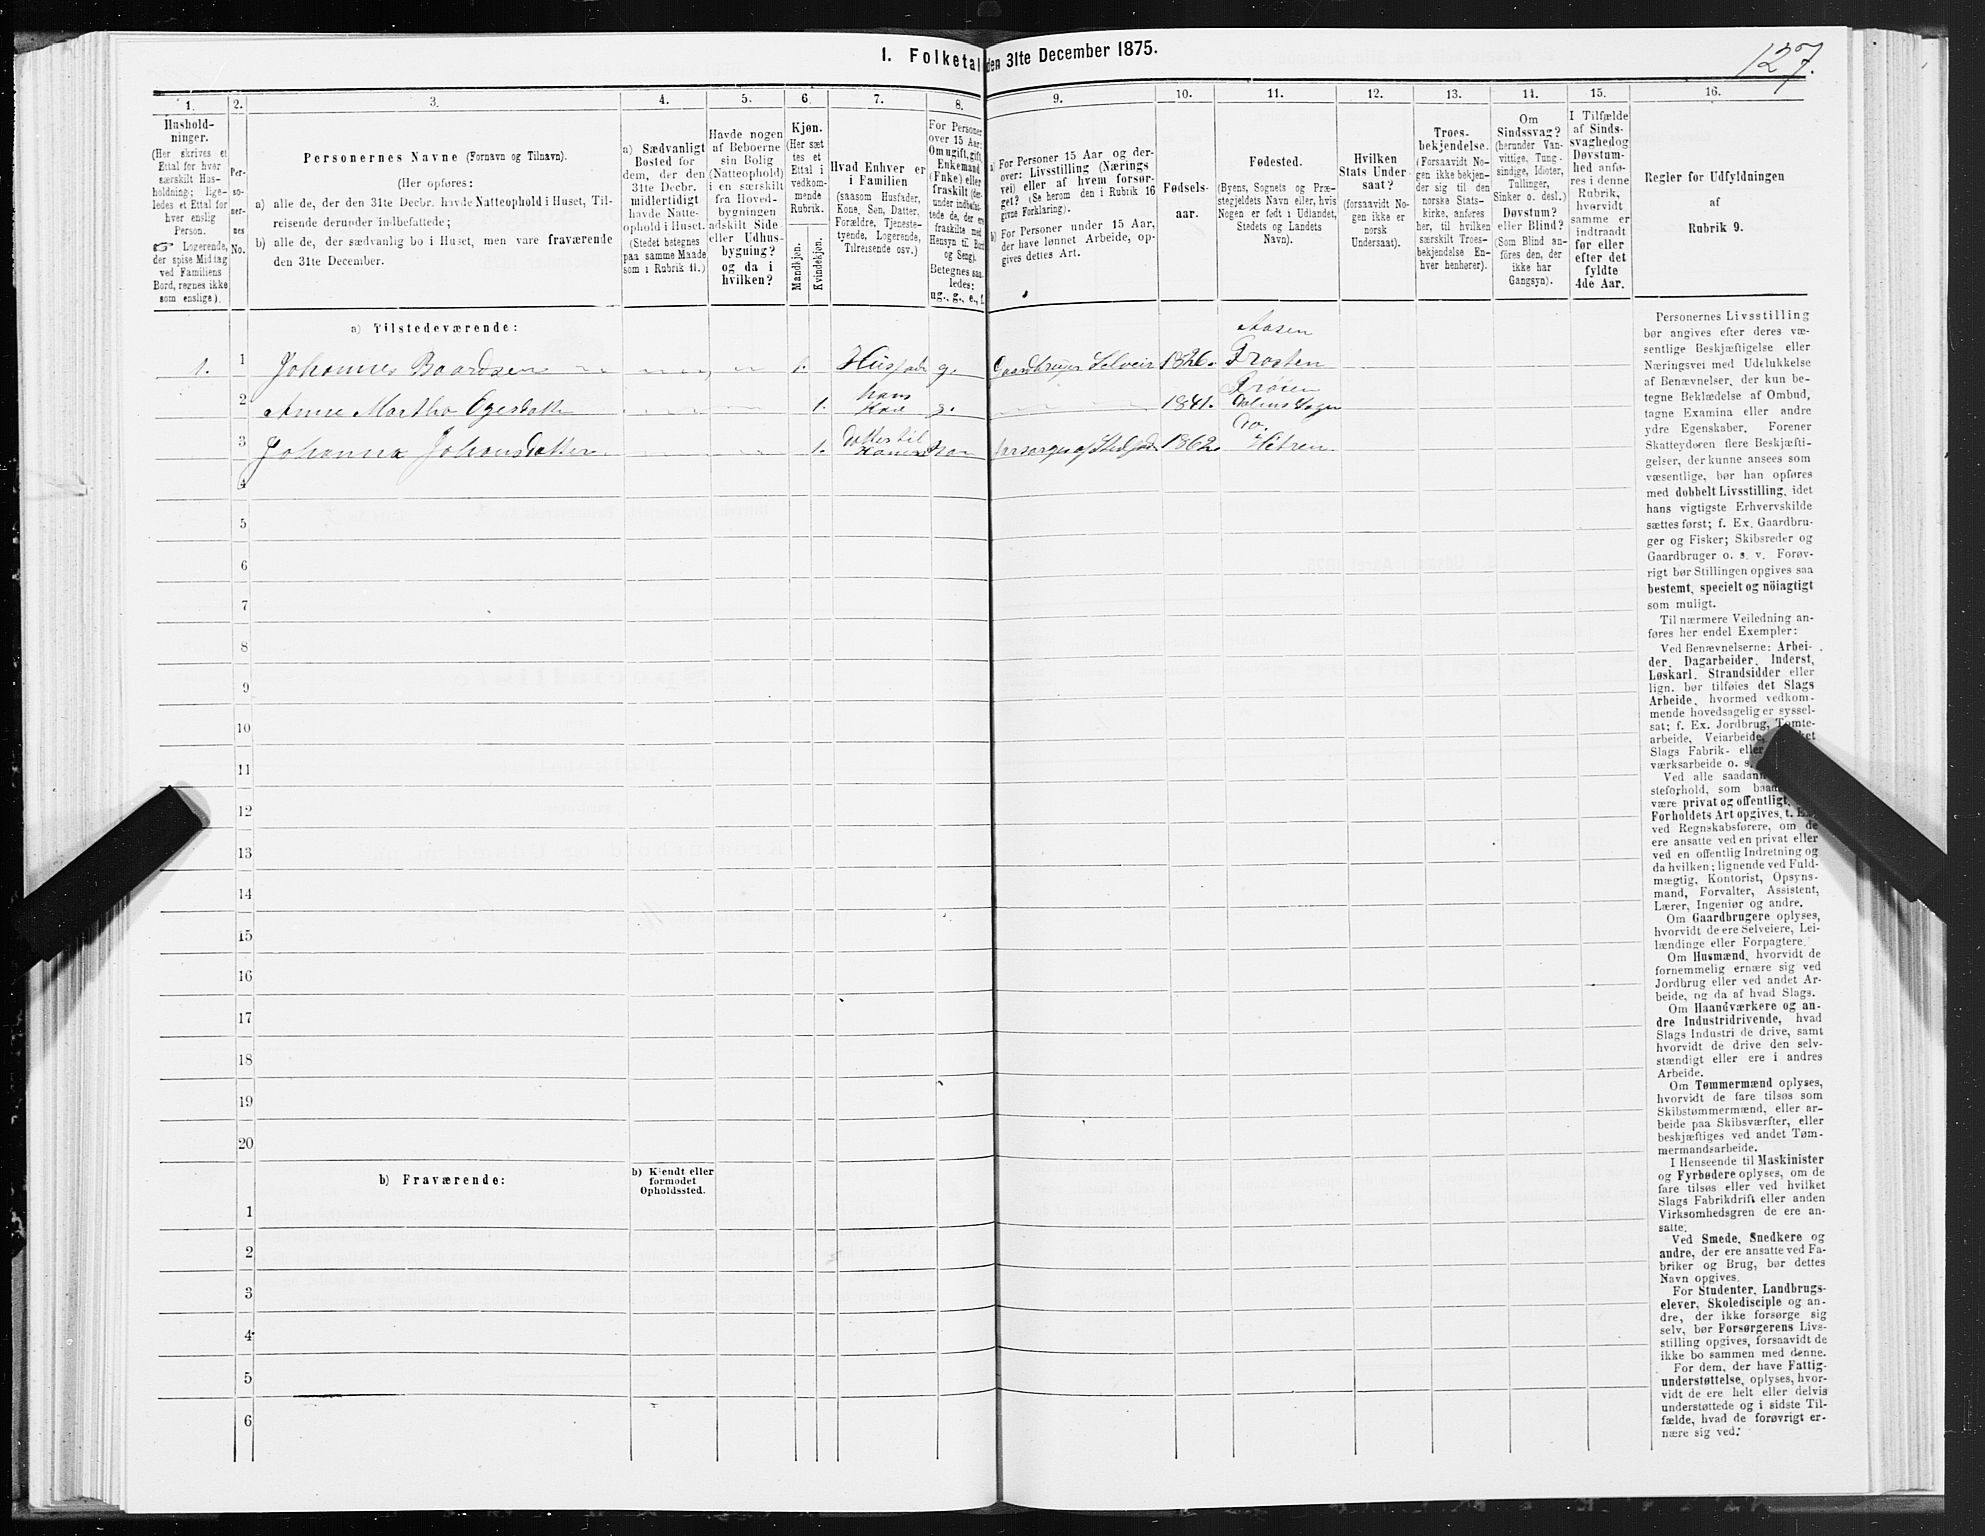 127.
I. Folketal den 31te December 1875.
1. 2. 3. 4. 5. 6. 7. 8. 9. 10. 11. 12. 13. 14. 15. 16.
Hushold-
ninger.
(Her skrives et
Ettal for hver
særskilt Hus-
holdning; lige-
ledes et Ettal for
hver enslig
Person.
☞ Logerende,
der spise Middag
ved Familiens
Bord, regnes ikke
som enslige).
Per-
so-
ner-
nes
No.
Personernes Navne (Fornavn og Tilnavn).
(Her opføres:
a) alle de, der den 31te Decbr. havde Natteophold i Huset, Til-
reisende derunder indbefattede;
b) alle de, der sædvanlig bo i Huset, men vare fraværende
den 31te December.
a) Sædvanligt
Bosted for
dem, der den
31te Decbr.
midlertidigt
havde Natte-
ophold i Huset.
(Stedet betegnes
paa samme Maade
som i Rubrik 11.)
Havde nogen
af Beboerne
sin Bolig
(Natteophold)
i en særskilt
fra Hoved-
bygningen
adskilt Side-
eller Udhus-
bygning?
og da i
hvilken?
Kjøn.
(Her sæt
tes et
Ettal i
vedkom-
mende
Rubrik.
Mandkjøn.
Kvindekjøn.
Hvad Enhver er
i Familien
(saasom Husfader,
Kone, Søn, Datter,
Forældre, Tjeneste-
tyende, Logerende,
Tilreisende osv.)
For Personer
over 15 Aar:
Om ugift, gift,
Enkemand
(Enke) eller
fraskilt (der-
under indbefat-
tede de, der ere
fraskilte med
Hensyn til Bord
og Seng).
Betegnes saa-
ledes:
ug., g., e., f.
a) For Personer 15 Aar og der-
over: Livsstilling (Nærings
vei) eller af hvem forsør-
get? (Se herom den i Rubrik 16
givne Forklaring).
b) For Personer under 15 Aar,
der have lønnet Arbeide, op-
gives dettes Art.
Fødsels-
aar.
Fødested.
(Byens, Sognets og Præ-
stegjeldets Navn eller, hvis
Nogen er født i Udlandet,
Stedets og Landets
Navn).
Hvilken
Stats Under-
saat?
(forsaavidt No-
gen ikke er
norsk
Undersaat).
Troes-
bekjendelse.
(Forsaavidt No-
gen ikke bekjen-
der sig til den
norske Stats-
kirke, anføres
her, til hvilken
særskilt Troes-
bekjendelse En-
hver henhører).
Om
Sindssvag?
(herunder Van-
vittige, Tung-
sindige, Idioter,
Tullinger,
Sinker o. desl.)
Døvstum?
eller Blind?
(Som Blind an-
føres den, der
ikke har
Gangsyn).
I Tilfælde
af Sinds-
svaghed og
Døvstum-
hed anfø-
res i denne
Rubrik,
hvorvidt
samme er
indtraadt
før eller
efter det
fyldte
4de Aar.
Regler for Udfyldningen
af
Rubrik 9.
a) Tilstedeværende:
1. 1 Johannes Baardsen 1. Husfader g. Gaardbruger Selveier 1826. Aasen Frosten
2 Anne Martha 1. hans Kone g. 1841.
3 Johanna Johansdatter 1. Datter til Konen af Stedfader 1862. Hitren
4
5
6
7
8
9
10
11
12
13
14
15
16
17
18
19
20
b) Fraværende:
b) Kjendt eller
formodet
Opholdssted.
1
2
3
4
5
6
Personernes Livsstilling
bør angives efter deres væ-
sentlige Beskjæftigelse eller
Næringsvei med Udelukkelse
af Benævnelser, der kun be-
tegne Beklædelse af Ombud,
tagne Examina eller andre
ydre Egenskaber. Forener
Skatteyderen flere Beskjæfti-
gelser, der kunne ansees som
væsentlige, bør han opføres
med dobbelt Livsstilling, idet
hans vigtigste Erhvervskilde
sættes først; f. Ex. Gaardbru-
ger og Fisker; Skibsreder og
Gaardbruger o. s. v. Forøv-
rigt bør Stillingen opgives saa
bestemt, specielt og nöiagtigt
som muligt.
Til nærmere Veiledning an-
føres her endel Exempler:
Ved Benævnelserne: Arbei-
der, Dagarbeider, Inderst,
Løskarl, Strandsidder eller
lign. bør tilføies det Slags
Arbeide, hvormed vedkom-
mende hovedsagelig er syssel-
sat; f. Ex. Jordbrug, Tomte-
arbeide, Veiarbeide,
Slags Fabrik- eller
værksarbeide o. s.
Ved alle
steforhold, som
være privat og offentligt,
Forholdets Art opgives, t. Ex.
ved Regnskabsførere, om de
ere ansatte ved en privat eller
ved en offentlig Indretning og
da hvilken; lignende ved Fuld-
mægtig, Kontorist, Opsyns-
mand, Forvalter, Assistent,
Lærer, Ingeniør og andre.
Om Gaardbrugere oplyses,
hvorvidt de ere Selveiere, Lei-
lændinge eller Forpagtere.
Om Husmænd, hvorvidt de
fornemmelig ernære sig ved
Jordbrug eller ved andet Ar-
beide, og da af hvad Slags.
Om Haandværkere og an-
dre Industridrivende, hvad
Slags Industri de drive, samt
hvorvidt de drive den selv-
stændigt eller ere i andres
Arbeide.
Om Tømmermænd oplyses,
hvorvidt de fare tilsøs som
Skibstømmermænd, eller ar-
beide paa Skibsværfter, eller
beskjæftiges ved andet Tøm-
mermandsarbeide.
I Henseende til Maskinister
og Fyrbødere oplyses, om de
fare tilsøs eller ved hvilket
Slags Fabrikdrift eller anden
Virksomhedsgren de ere an-
satte.
Ved Smede, Snedkere og
andre, der ere ansatte ved Fa-
briker og Brug, bør dettes
Navn opgives.
For Studenter, Landbrugs-
elever, Skoledisciple og an-
dre, der ikke forsørge sig
selv, bør Forsørgerens Livs-
stilling opgives, forsaavidt de
ikke bo sammen med denne.
For dem, der have Fattig-
understøttelse, oplyses, hvor-
vidt de ere helt eller delvis
understøttede og i sidste Til-
fælde, hvad de forøvrigt er-
nære sig ved.